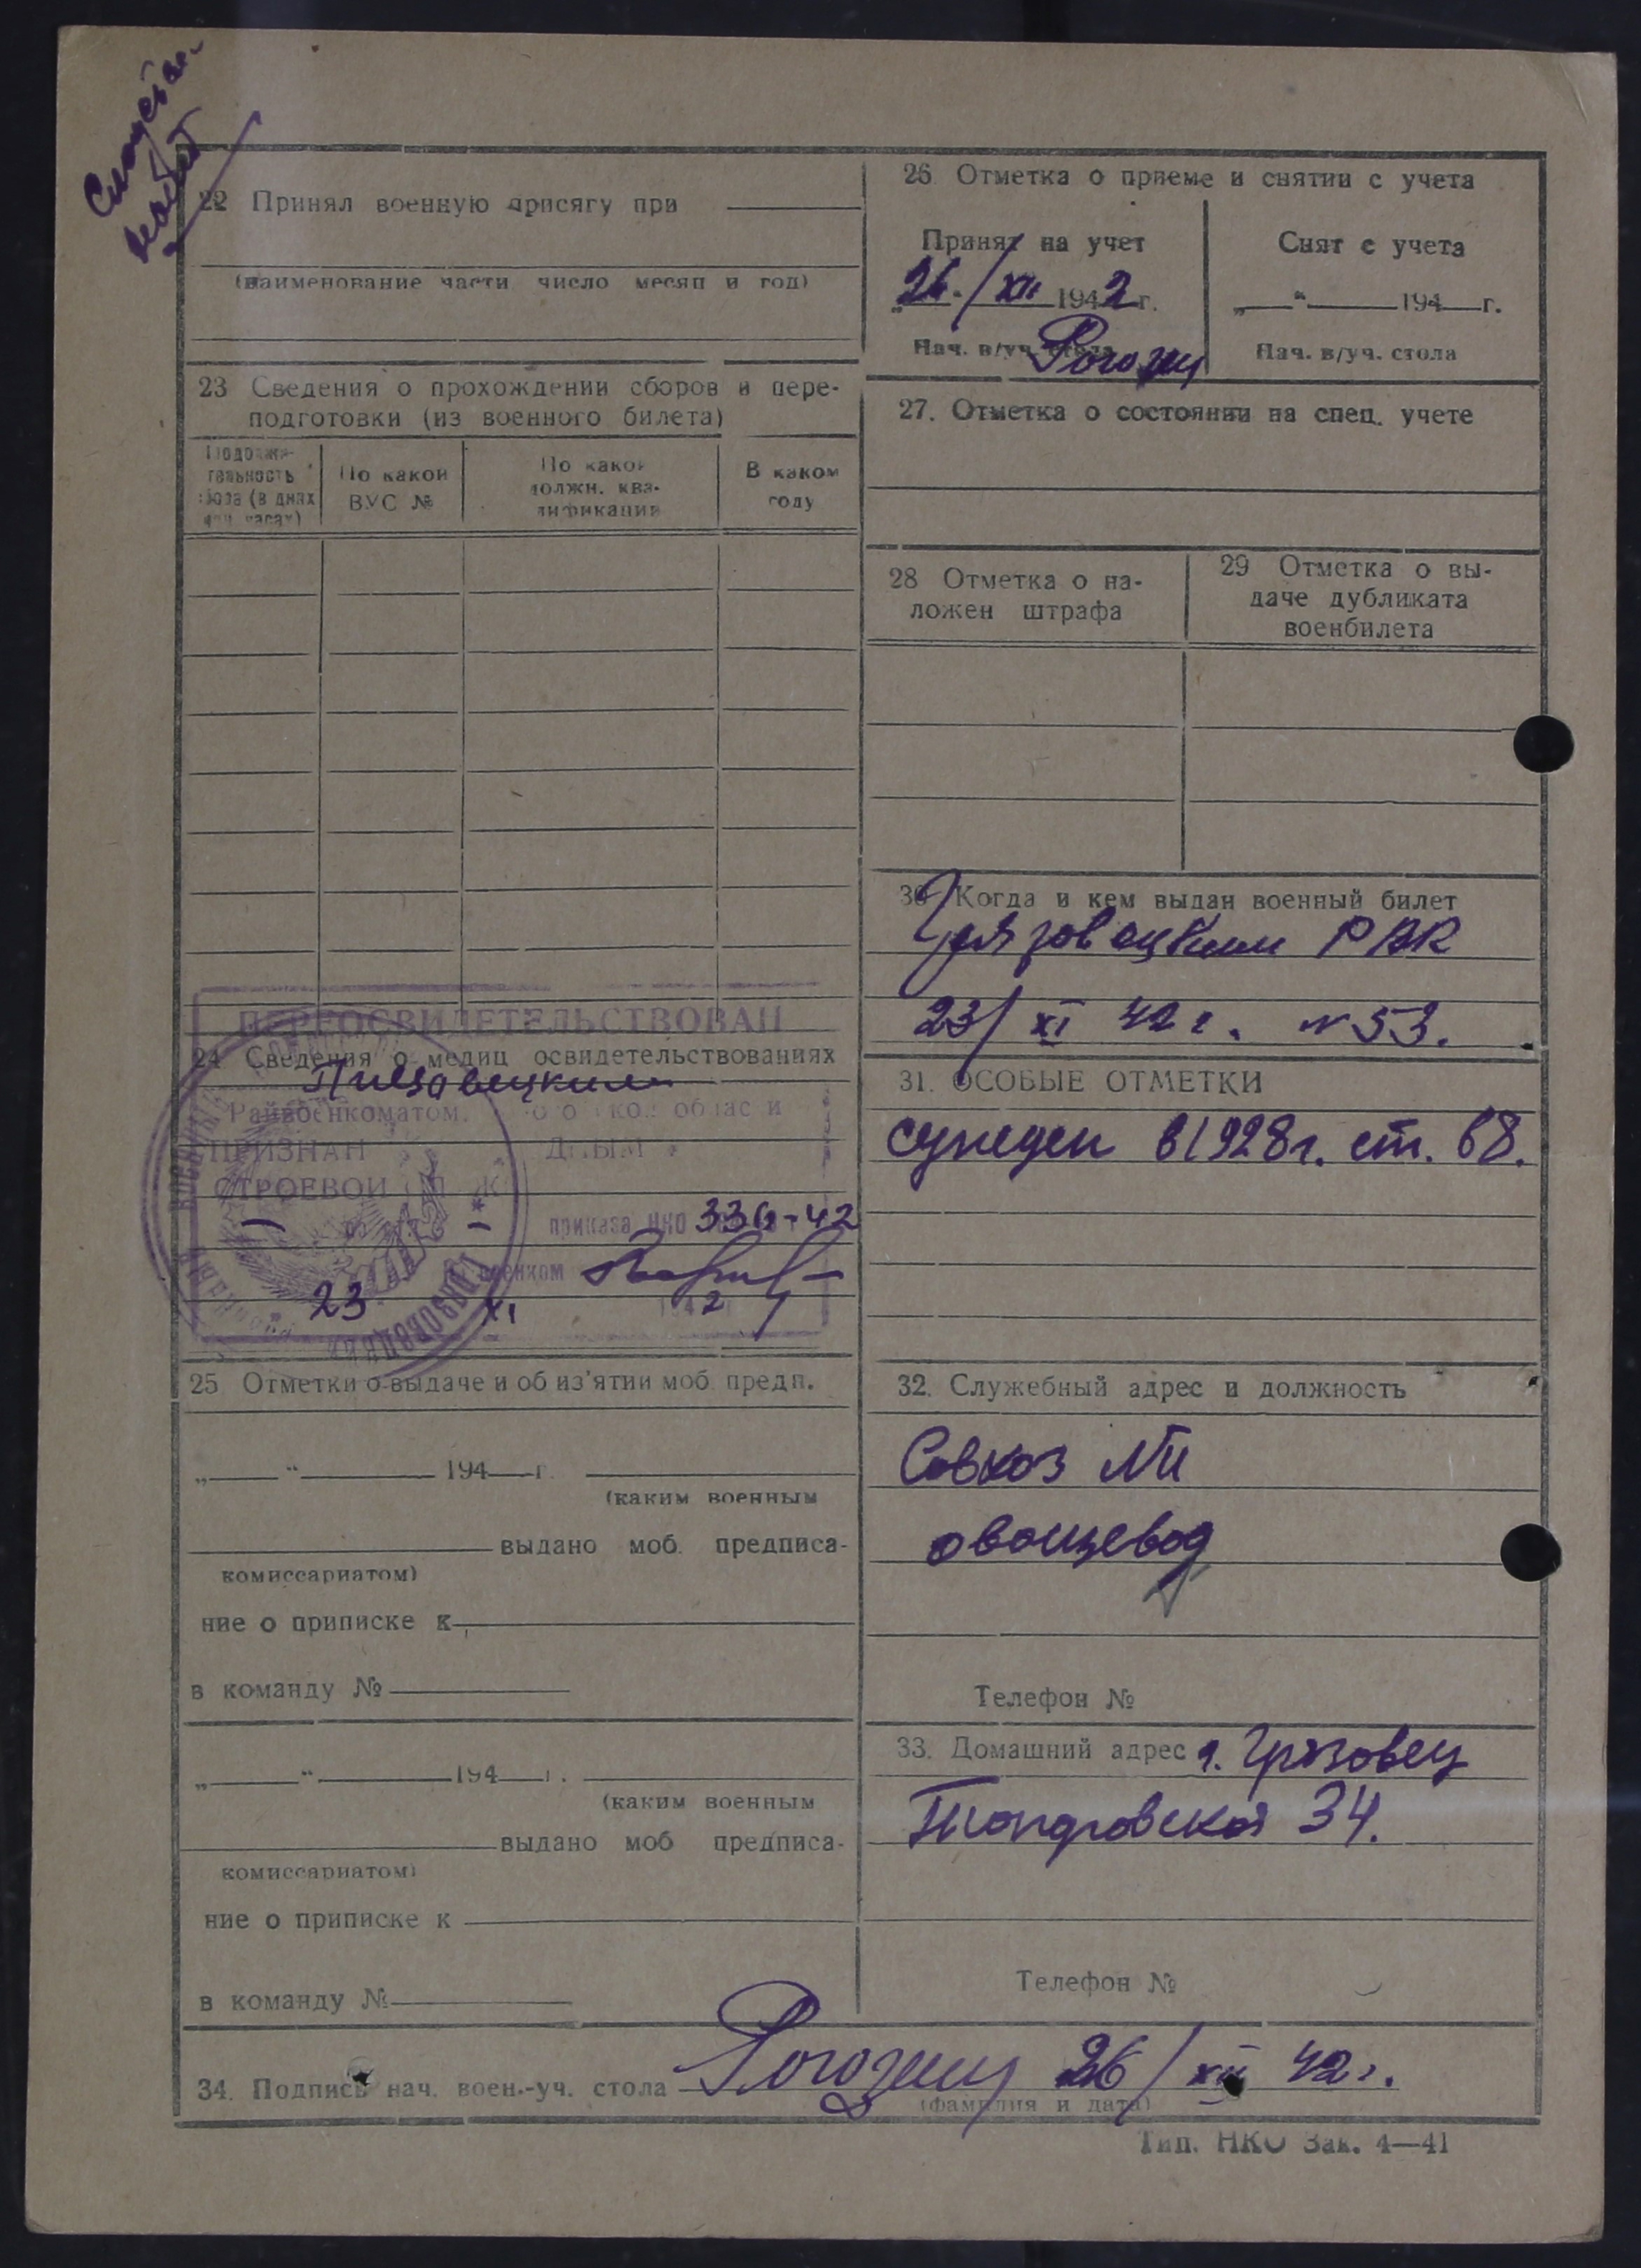 22 Принял военную присягу при
(наименование части число месяц и год)
23 Сведения о прохождении сборов и пере-
подготовки (из военного билета)
Продолжи-
тельность
сбора (в днях
или часах)
По какой
ВУС №
По какой
должн. ква-
лификации
В каком
году
ПЕРЕОСВИДЕТЕЛЬСТВОВАН
24 Сведения о медиц освидетельствованиях
Райвоенкоматом. области
ПРИЗНАН
СТРОЕВОЙ
приказа НКО 336-42
военком
23 XI 1942
25 Отметки о выдаче и об из'ятии моб. предп.
„ “ 194 г.
(каким военным
выдано моб. предписа-
комиссариатом)
ние о приписке к
в команду №
„ “ 194 г.
(каким военным
выдано моб предписа-
комиссариатом)
ние о приписке к
в команду №
26 Отметка о приеме и снятии с учета
Принят на учет
26/XII 1942 г.
Нач. в/уч. стола Рогозин
Снят с учета
„ “ 194 г.
Нач. в/уч. стола
27. Отметка о состоянии на спец. учете
28 Отметка о на-
ложен штрафа
29 Отметка о вы-
даче дубликата
военбилета
30 Когда и кем выдан военный билет
Грязовецким РВК
23/XI 42 г. № 53.
31. ОСОБЫЕ ОТМЕТКИ
сужден в 1928 г. ст. 68.
32. Служебный адрес и должность
Совхоз
овощевод
Телефон №
33. Домашний адрес г. Грязовец
34.
Телефон №
34. Подпись нач. воен.-уч. стола Рогозин 26/XII 42 г.
(фамилия и дата)
Тип. НКО Зак. 4—41